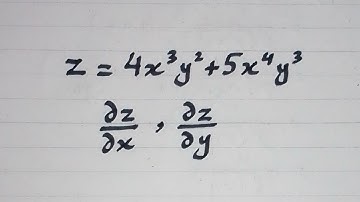 z = 4x³y² + 5x⁴y³
∂z/∂x , ∂z/∂y